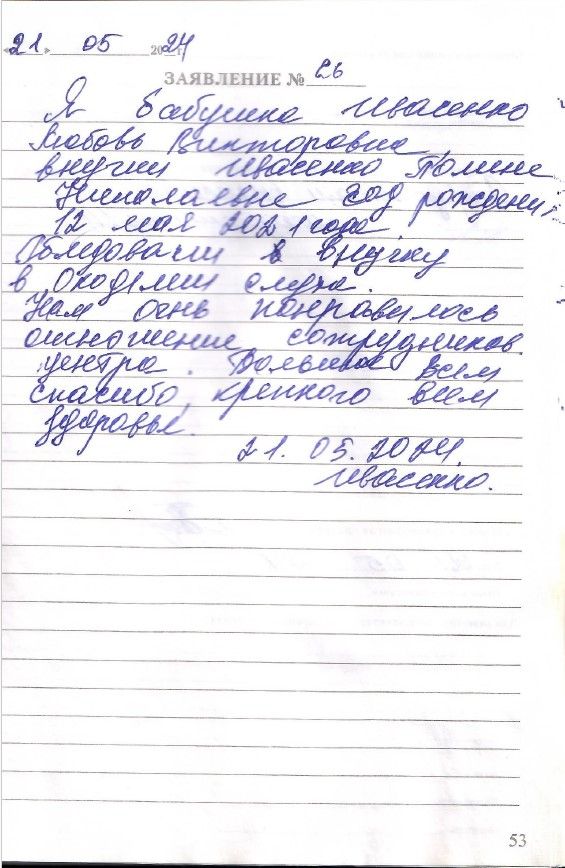 «21» 05 2024 г.
ЗАЯВЛЕНИЕ № 26
Я бабушка Ивасенко
Любовь Викторовна
внучки Ивасенко Полине
Николаевне год рождения
12 мая 2021 года
Обледовали внучку
в Окодемии слуха.
Нам очень понравилось
отношение сотрудников
центра. Большое всем
спасибо, крепкого всем
здоровья.
21. 05. 2024
Ивасенко.
53